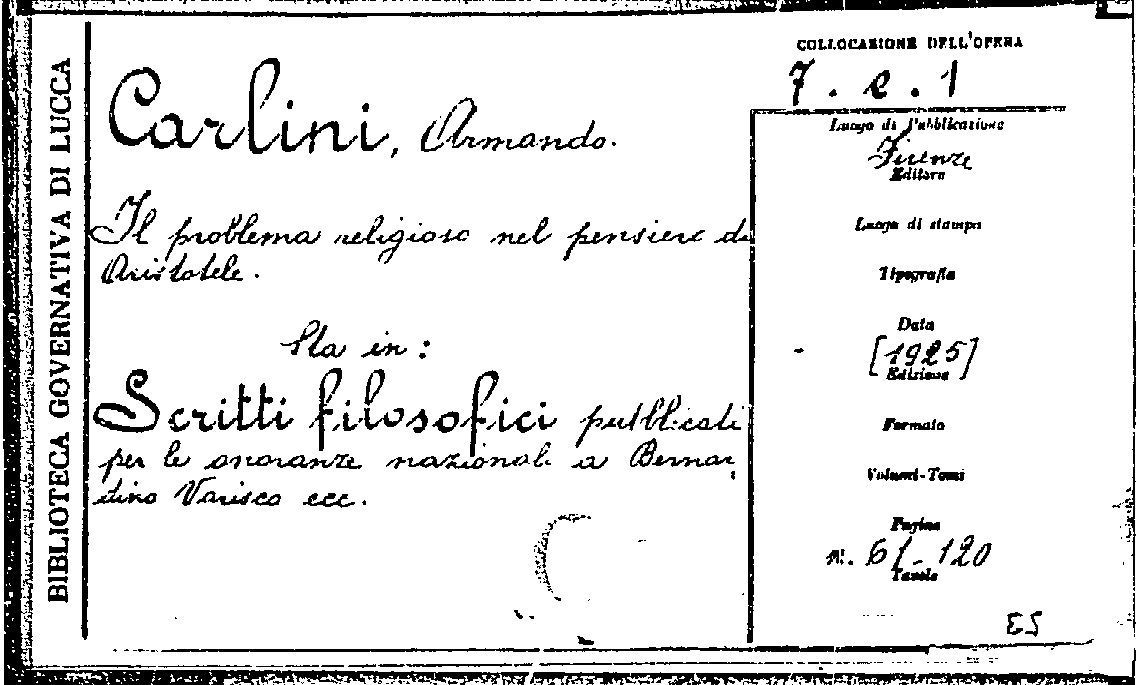 BIBLIOTECA GOVERNATIVA DI LUCCA
Carlini, Armando.
Il problema religioso nel pensiero di
Aristotele.
Sta in:
Scritti filosofici pubblicati
per le onoranze nazionali a Bernar
dino Varisco ecc.
COLLOCAZIONE DELL'OPERA
7. e. 1
Luogo di Pubblicazione
Firenze
Editore
Luogo di stampa
Tipografia
Data
[1925]
Edizione
Formato
Volumi-Tomi
Pagine
61-120
Tavole